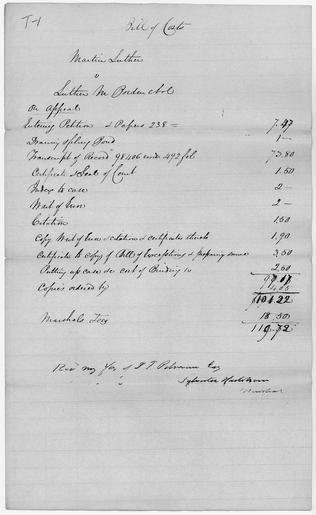 T-1
Bill of Costs
Martin Luther
v
Luther M Borden et al
on appeal
Entering Petition & Papers 238 = 7.47
Drawing & filing Bond 1 —
Transcript of Record 98406 words 492 fol 73.80
Certificate & Seal of Court 1.50
Index to case 2 —
Writ of Error 2 —
Citation 1,50
Copy Writ of Error & citation & certificates thereto 1.90
Certificate to copy of (Bill) of Exceptions & preparing same 3,50
Putting up case & cost of Binding 2,50
97.17
Copies ordered by 4.05
101.22
Marshals Fees 18.50
119.72
Recd my fees of
Esq